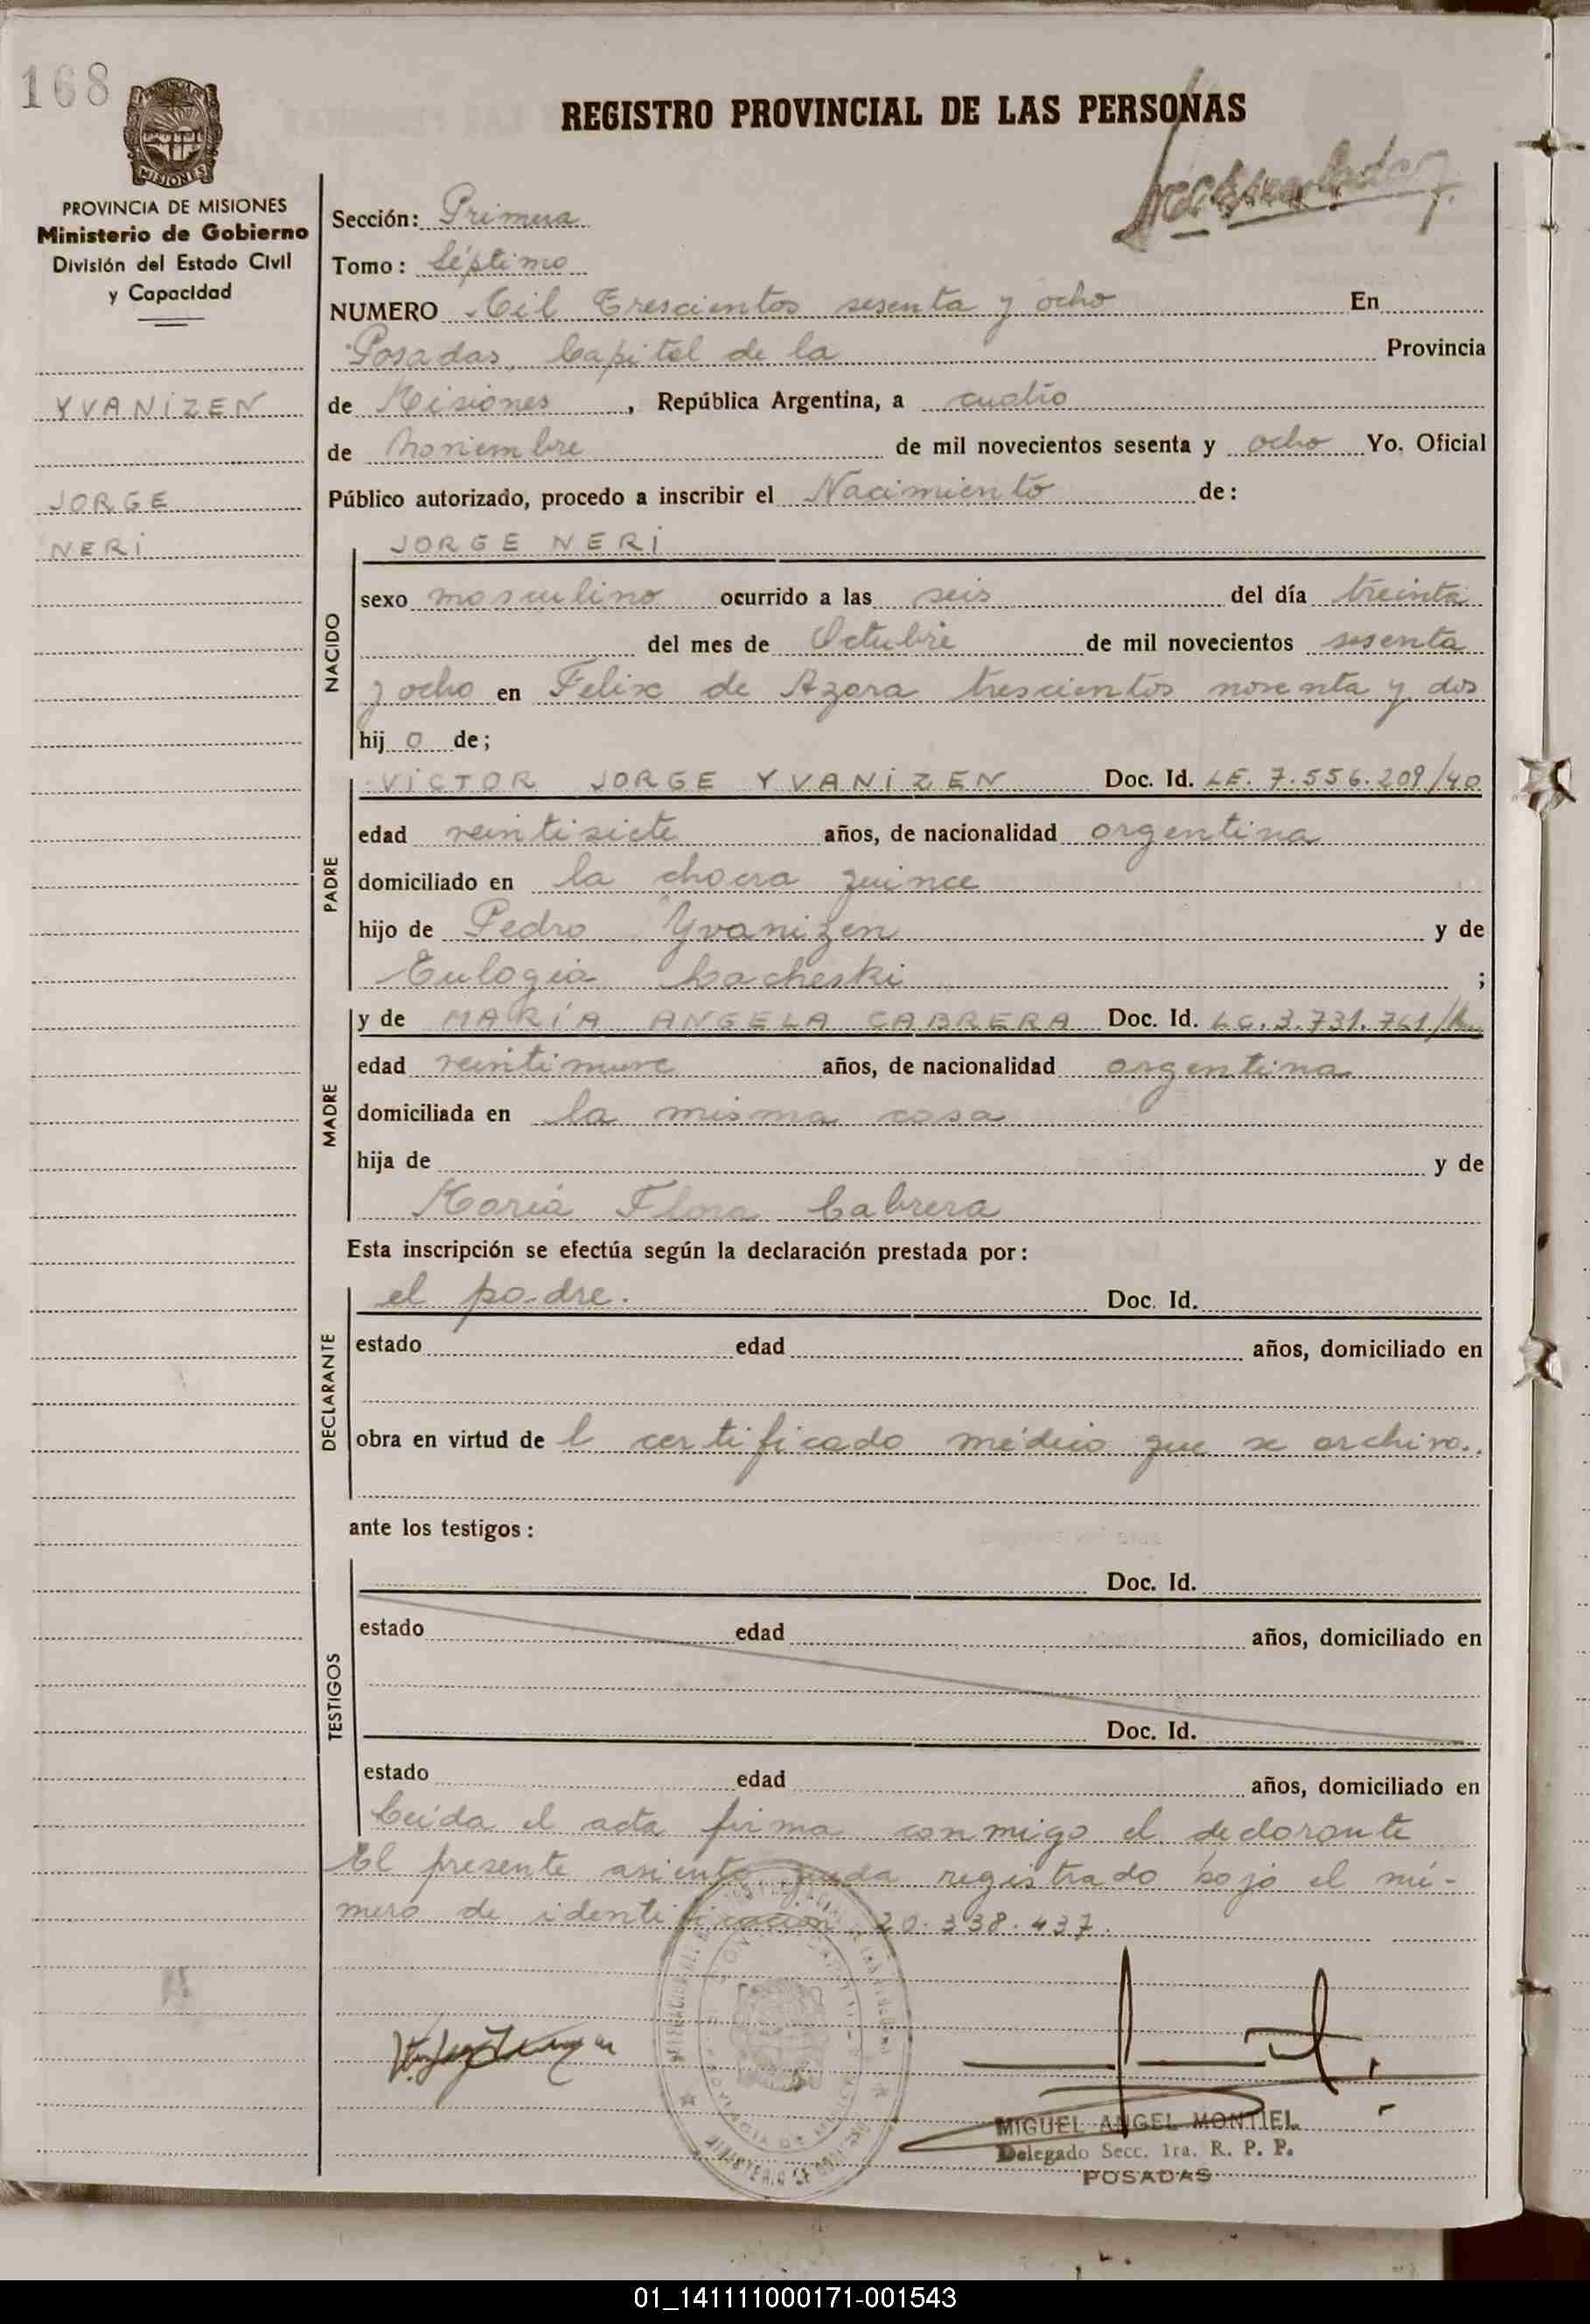 168
REGISTRO PROVINCIAL DE LAS PERSONAS
MISIONES
PROVINCIA DE MISIONES
Ministerio de Gobierno
División del Estado Civil
y Capacidad
YVANIZEN
JORGE
NERI
Sección: Primera
Tomo: Séptimo
NUMERO Mil Trescientos sesenta y ocho En
Posadas, Capital de la Provincia
de Misiones, República Argentina, a cuatro
de Noviembre de mil novecientos sesenta y ocho Yo. Oficial
Público autorizado, procedo a inscribir el Nacimiento de:
JORGE NERI
NACIDO
sexo masculino ocurrido a las seis del día treinta
del mes de Octubre de mil novecientos sesenta
y ocho en Felix de Azara trescientos noventa y dos
hijo de;
PADRE
VICTOR JORGE YVANIZEN Doc. Id. LE. 7.556.209/40
edad veintisiete años, de nacionalidad argentina
domiciliado en la chacra quince
hijo de Pedro Yvanizen y de
Eulogia Lacheski;
MADRE
y de MARÍA ANGELA CABRERA Doc. Id. LC. 3.731.761/
edad veintinueve años, de nacionalidad argentina
domiciliada en la misma casa
hija de y de
María Flora Cabrera
Esta inscripción se efectúa según la declaración prestada por:
DECLARANTE
el padre. Doc. Id.
estado edad años, domiciliado en
obra en virtud del certificado médico que se archiva.
ante los testigos:
TESTIGOS
Doc. Id.
estado edad años, domiciliado en
Doc. Id.
estado edad años, domiciliado en
Leída el acta firma conmigo el declarante
El presente asiento queda registrado bajo el nú-
mero de identificación 20.338.437.
MIGUEL ANGEL MONTIEL
Delegado Secc. 1ra. R. P. P.
POSADAS
01_141111000171-001543